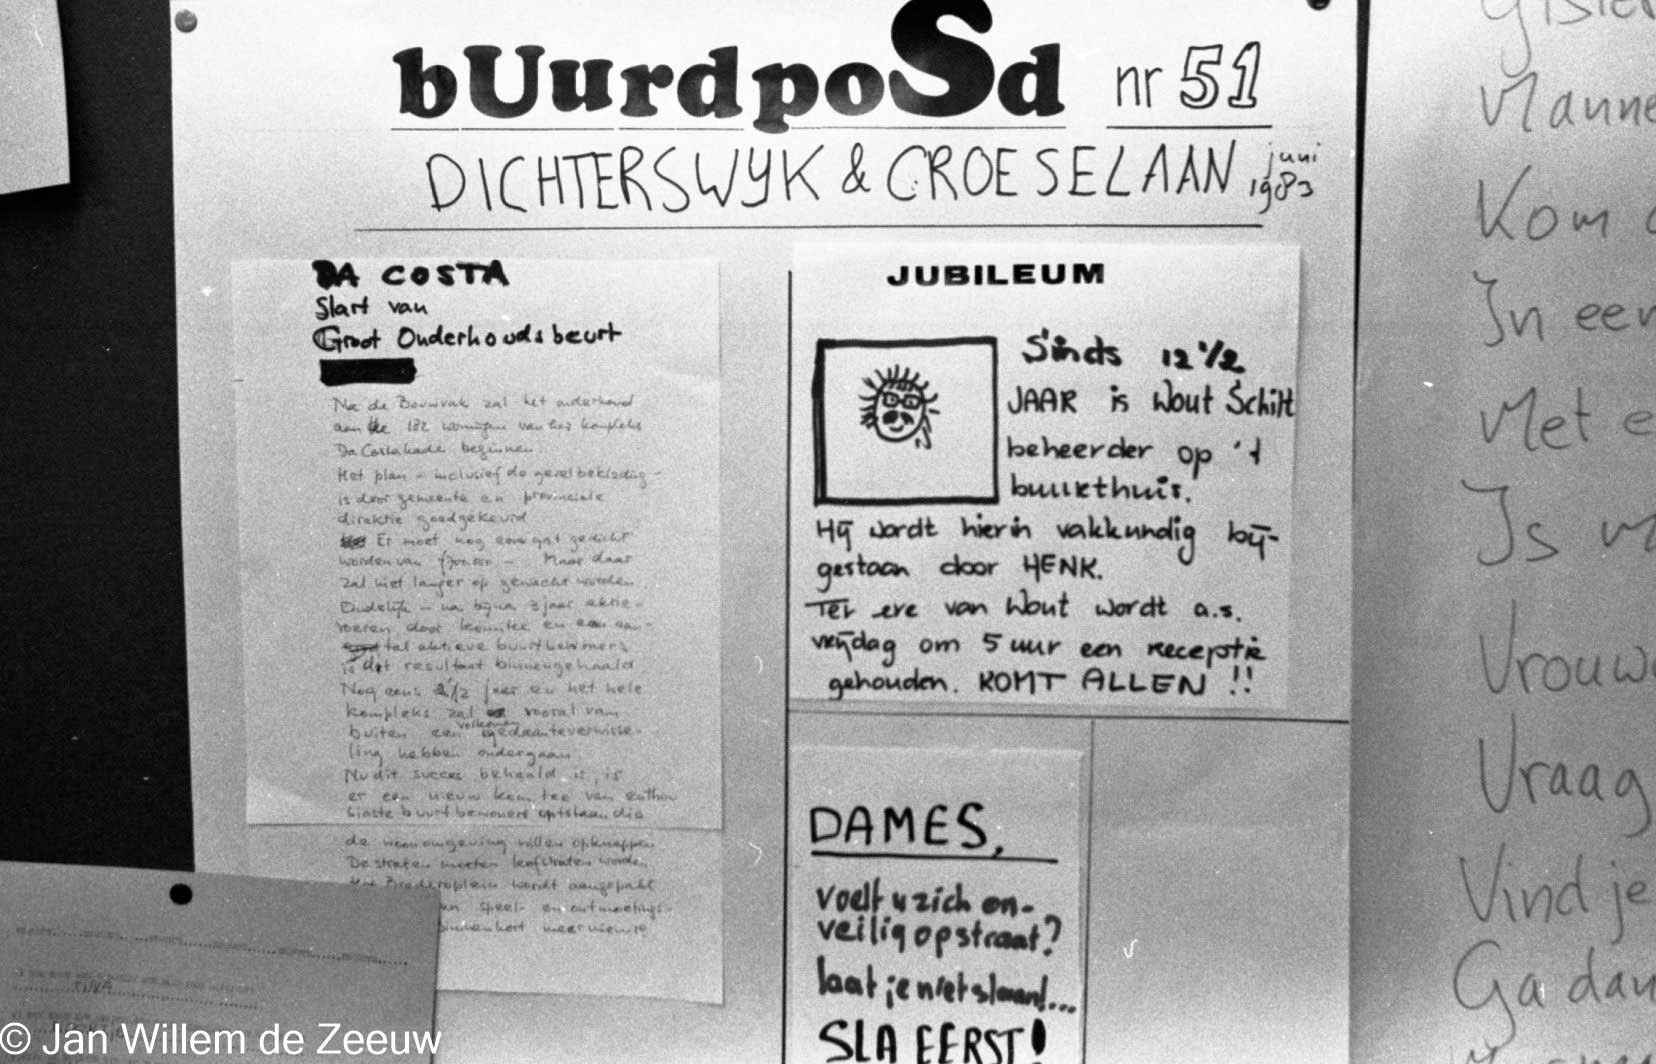 bUurdpoSd nr 51
DICHTERSWYK & CROESELAAN juni 1983
DA COSTA
Start van
Groot Onderhoudsbeurt
Na de Bouwvak zal het onderhoud
aan de 182 woningen van het kompleks
Da Costakade beginnen.
Het plan - inclusief de gevelbekleding -
is door gemeente en provinciale
direktie goedgekeurd
Er moet nog een gat gedicht
worden van Maar daar
zal niet langer op gewacht worden
Eindelijk - na bijna 3 jaar aktie-
voeren door komitee en een aan-
tal aktieve buurtbewoners
is dit resultaat binnengehaald
Nog eens 2 1/2 jaar en het hele
kompleks zal vooral van
buiten een volkomen gedaanteverwisse-
ling hebben ondergaan
Nu dit succes behaald is, is
er een nieuw komitee van enthou
siaste buurtbewoners ontstaan die
de woonomgeving willen opknappen
De straten moeten leefstraten worden
Het Brederoplein wordt aangepakt
en speel- en ontmoetings-
binnenkort meer nieuws
JUBILEUM
Sinds 12 1/2
JAAR is Wout Schilt
beheerder op 't
buurthuis.
Hij wordt hierin vakkundig bij-
gestaan door HENK.
Ter ere van Wout wordt a.s.
vrijdag om 5 uur een receptie
gehouden. KOMT ALLEN !!
DAMES,
voelt u zich on-
veilig op straat?
laat je niet slaan!...
SLA EERST!
TINA
Manne
Kom
In een
Met e
Is
Vrouw
Vraag
Vind je
Ga dan
© Jan Willem de Zeeuw